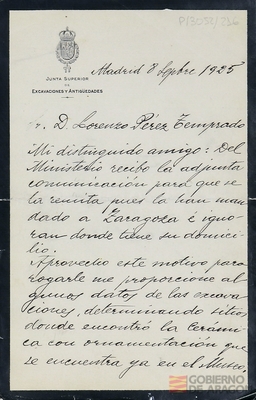 JUNTA SUPERIOR
DE
EXCAVACIONES Y ANTIGÜEDADES
Madrid 8 Sepbre 1925
Sr. D. Lorenzo Pérez Temprado
Mi distinguido amigo: Del
Ministerio recibo la adjunta
comunicación para que se
la remita pues la han man
dado a Zaragoza é igno-
ran donde tiene su domici-
lio.
Aprovecho este motivo para
rogarle me proporcione al
gunos datos de las excava
ciones, determinando sitios
donde encontró la Cerámi-
ca con ornamentación que
se encuentra ya en el Museo,
GOBIERNO
DE ARAGON